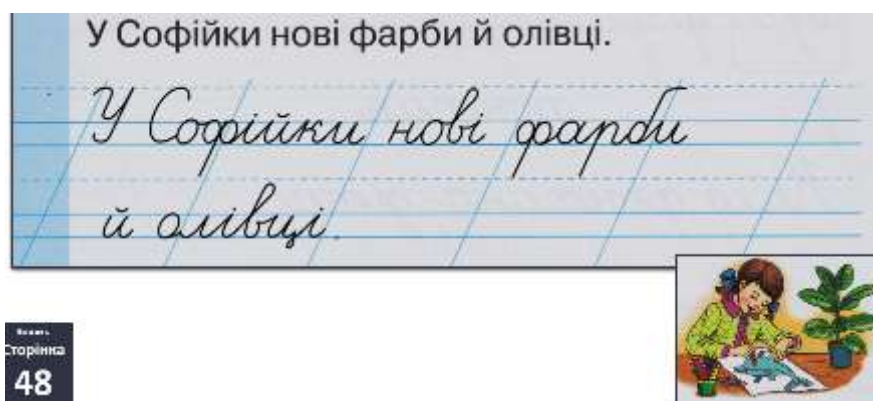 У Софійки нові фарби й олівці.
У Софійки нові фарби
й олівці.
Сторінка
48